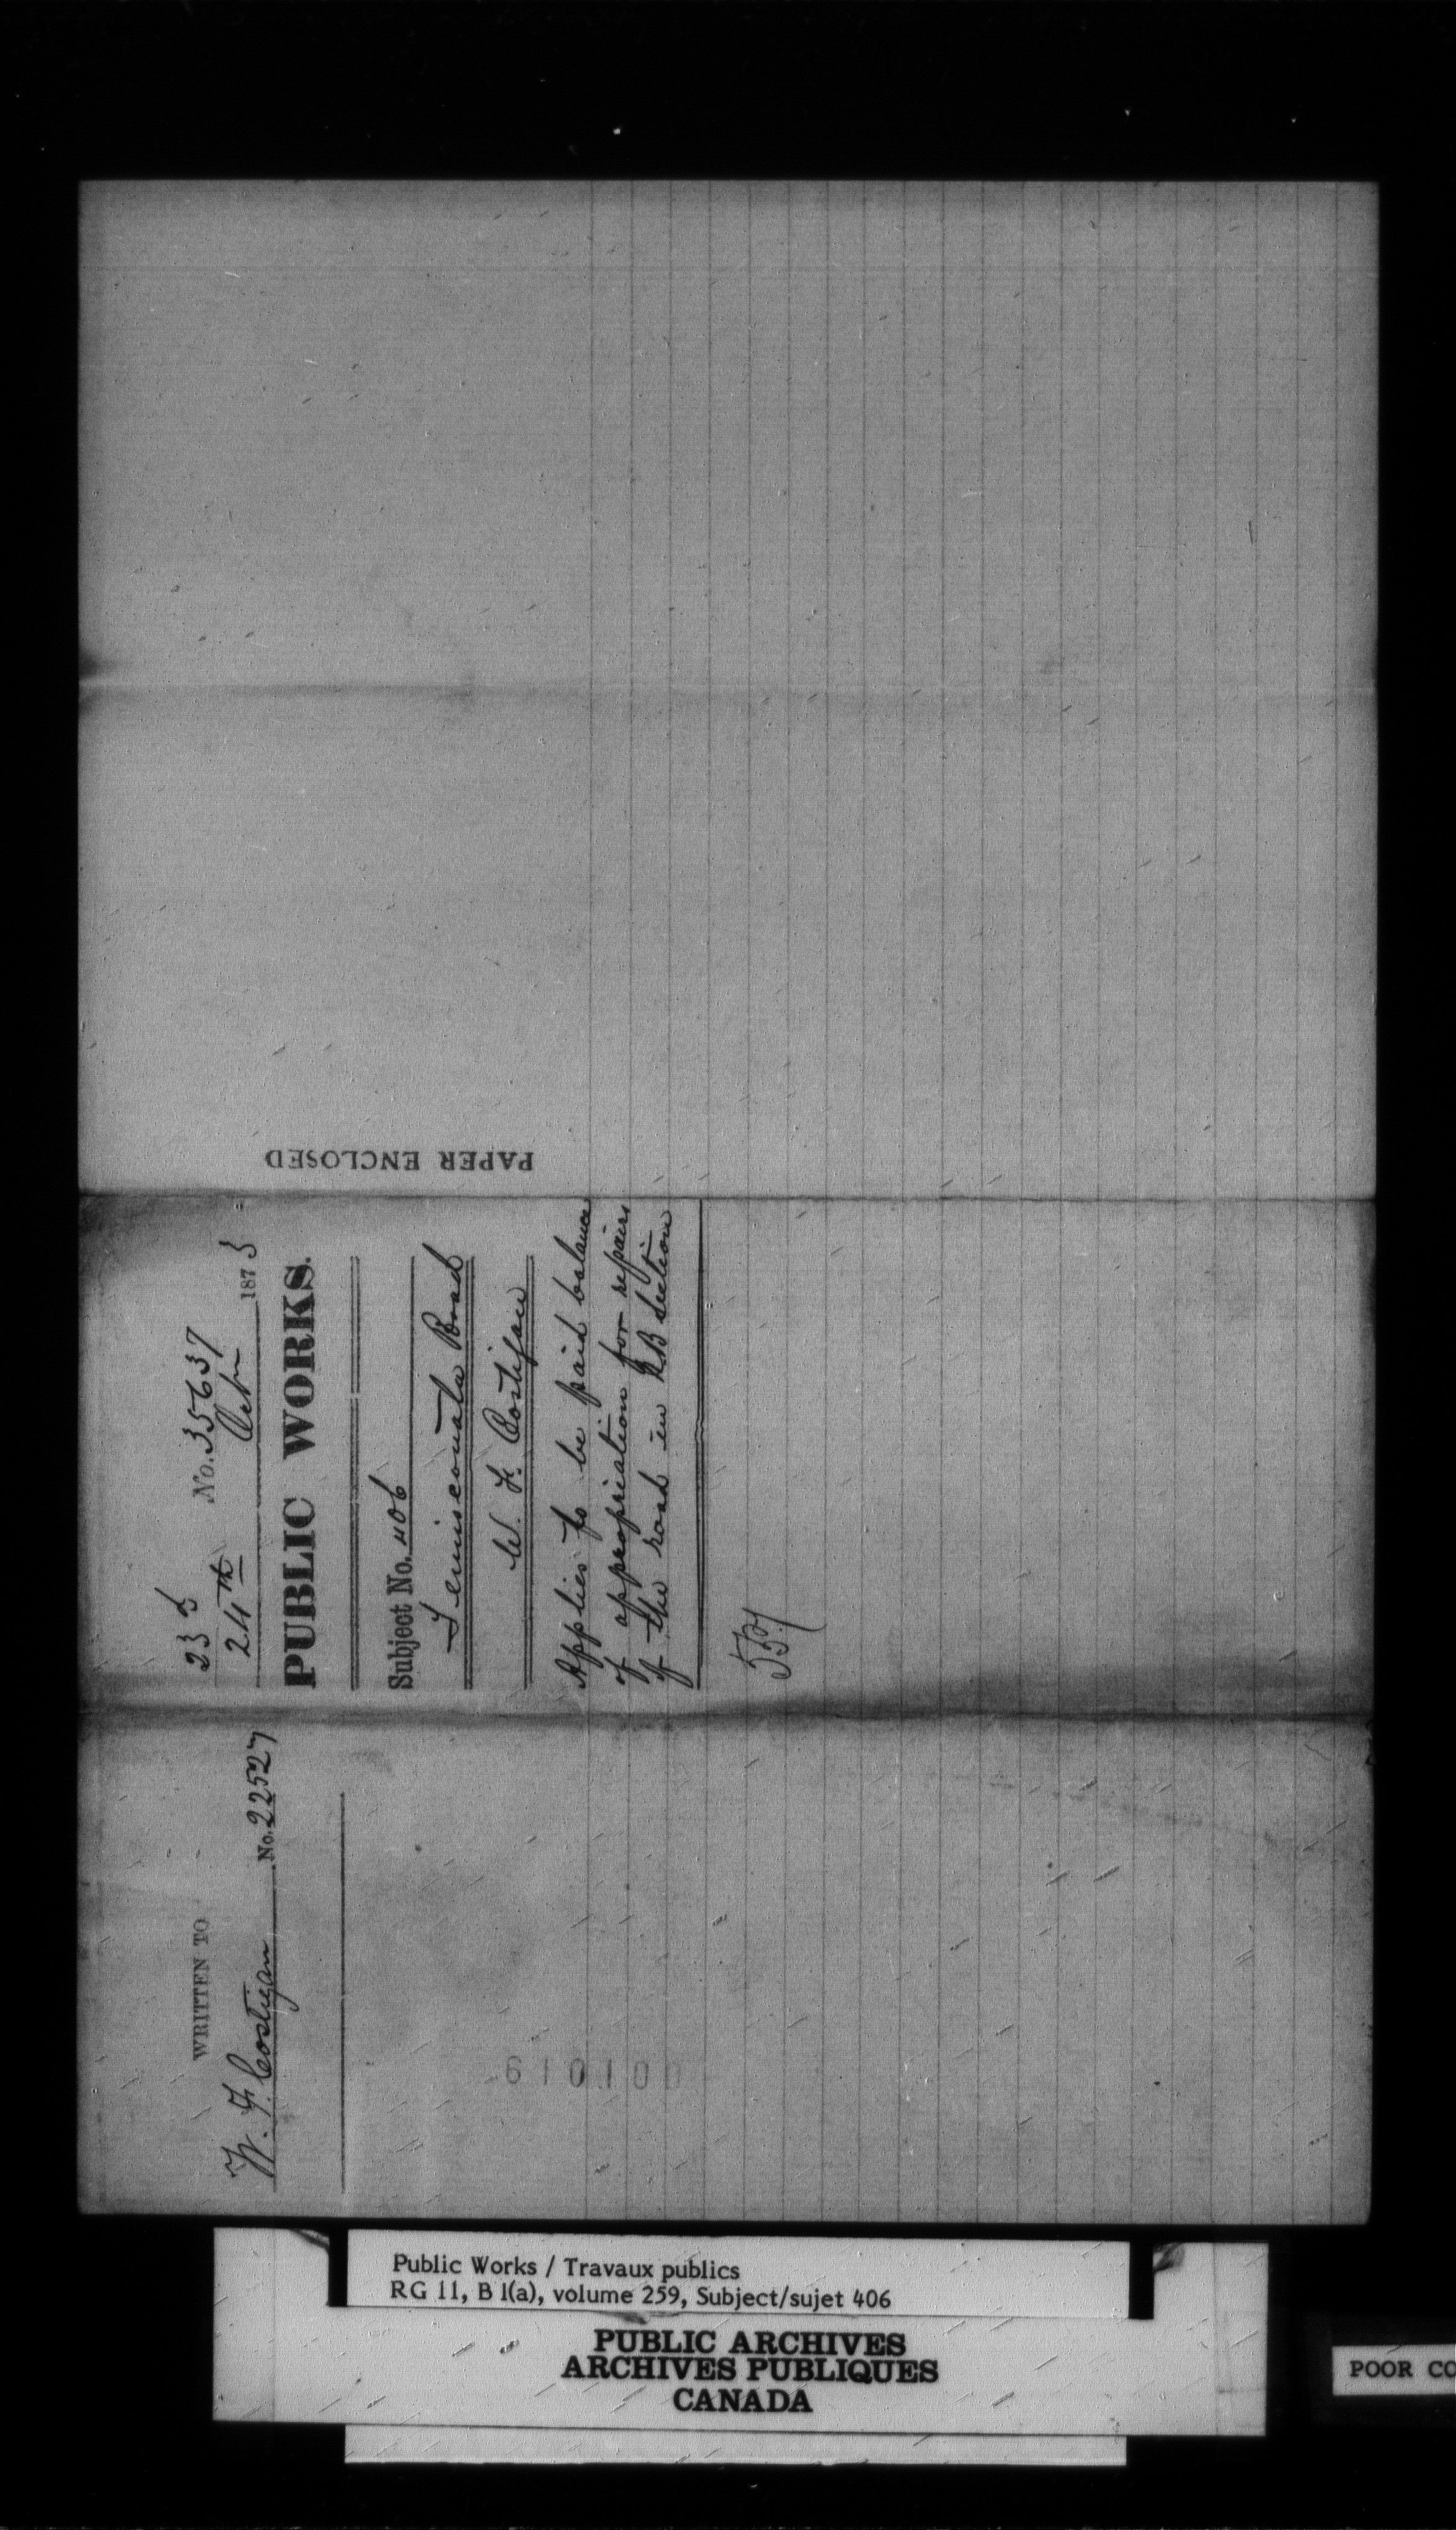 WRITTEN TO
W. F. Costigan No. 22527
No. 35637
24th Octr 1873
PUBLIC WORKS.
Subject No. 406
Temiscouata Road
W. F. Costigan
Applies to be paid balance
of appropriation for repairs
of the road in NB section
PAPER ENCLOSED
Public Works / Travaux publics
RG 11, B 1(a), volume 259, Subject/sujet 406
PUBLIC ARCHIVES
ARCHIVES PUBLIQUES
CANADA
POOR CO